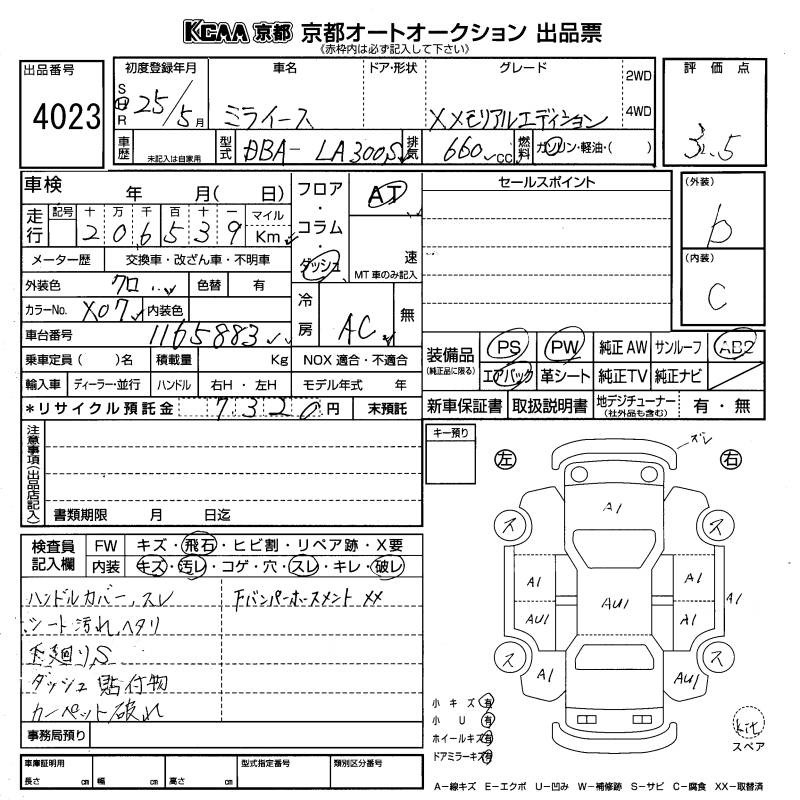 KCAA 京都 京都オートオークション 出品票
《赤枠内は必ず記入して下さい》
出品番号
4023
初度登録年月 車名 ドア・形状 グレード 2WD
S H R 25/5月 ミライース XXメモリアルエディション 4WD
車歴 未記入は自家用 型式 DBA- LA300S 排気 660 CC 燃料 ガソリン・軽油・( )
評価点
3.5
車検 年 月( 日)
フロア・コラム・ダッシュ
AT
速
MT車のみ記入
走行 記号 十 万 千 百 十 一 マイル
206539 Km
メーター歴 交換車・改ざん車・不明車
外装色 クロ 色替 有
カラーNo. X07 内装色
冷房 AC 無
車台番号 1165883
乗車定員( )名 積載量 Kg NOX適合・不適合
輸入車 ディーラー・並行 ハンドル 右H・左H モデル年式 年
*リサイクル預託金 7320円 未預託
セールスポイント
(外装)
b
(内装)
C
装備品 (純正品に限る) PS PW 純正AW サンルーフ AB2
エアバック 革シート 純正TV 純正ナビ
新車保証書 取扱説明書 地デジチューナー (社外品も含む) 有・無
注意事項(出品店記入)
書類期限 月 日迄
キー預り
検査員記入欄 FW キズ・飛石・ヒビ割・リペア跡・X要
内装 キズ・汚レ・コゲ・穴・スレ・キレ・破レ
ハンドルカバー、スレ
シート汚れ、ヘタリ
S
ダッシュ貼付物
カーペット破れ
XX
事務局預り
車庫証明用 型式指定番号 類別区分番号
長さ cm 幅 cm 高さ cm
左 右
ズレ
ス ス
A1
A1 A1 A1
AU1 AU1 A1
ス ス
A1 AU1
小キズ 有
小U 有
ホイールキズ 有
ドアミラーキズ 有
kit
スペア
A-線キズ E-エクボ U-凹み W-補修跡 S-サビ C-腐食 XX-取替済